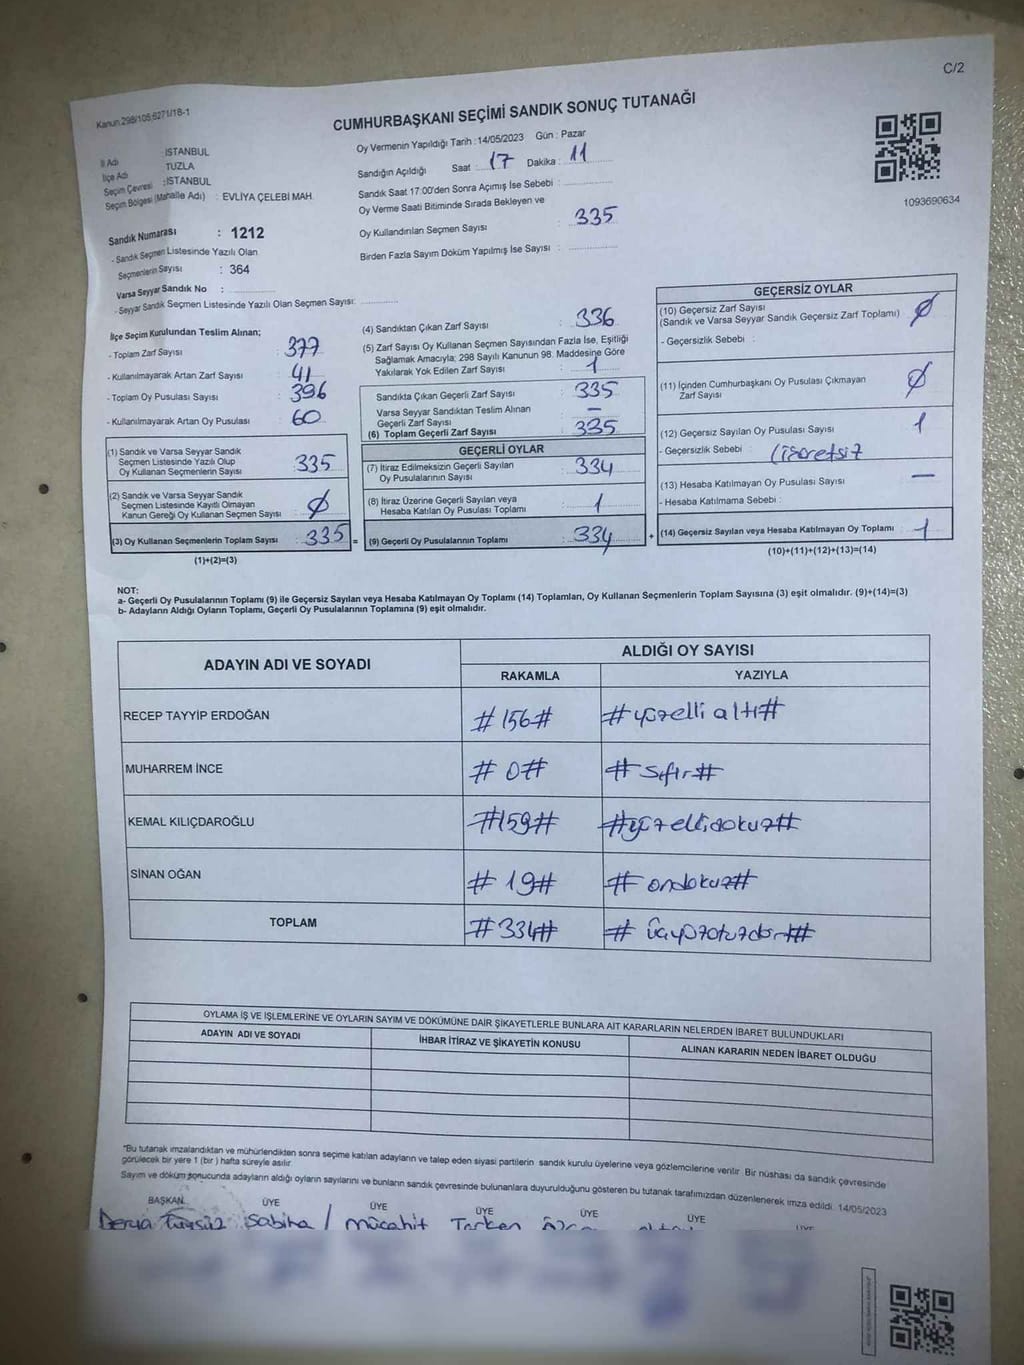 C/2
Kanun 298/106;6271/18-1
CUMHURBAŞKANI SEÇİMİ SANDIK SONUÇ TUTANAĞI
İl Adı : İSTANBUL
İlçe Adı TUZLA
Seçim Çevresi : İSTANBUL
Seçim Bölgesi (Mahalle Adı) : EVLİYA ÇELEBİ MAH
Sandık Numarası : 1212
- Sandık Seçmen Listesinde Yazılı Olan
Seçmenlerin Sayısı : 364
Varsa Seyyar Sandık No :
- Seyyar Sandık Seçmen Listesinde Yazılı Olan Seçmen Sayısı:
Oy Vermenin Yapıldığı Tarih : 14/05/2023 Gün : Pazar
Sandığın Açıldığı Saat : 17 Dakika : 11
Sandık Saat 17:00'den Sonra Açımış İse Sebebi :
Oy Verme Saati Bitiminde Sırada Bekleyen ve
Oy Kullandırılan Seçmen Sayısı : 335
Birden Fazla Sayım Döküm Yapılmış İse Sayısı :
1093690634
İlçe Seçim Kurulundan Teslim Alınan;
- Toplam Zarf Sayısı : 377
- Kullanılmayarak Artan Zarf Sayısı : 41
- Toplam Oy Pusulası Sayısı : 396
- Kullanılmayarak Artan Oy Pusulası : 60
(1) Sandık ve Varsa Seyyar Sandık
Seçmen Listesinde Yazılı Olup
Oy Kullanan Seçmenlerin Sayısı : 335
(2) Sandık ve Varsa Seyyar Sandık
Seçmen Listesinde Kayıtlı Olmayan
Kanun Gereği Oy Kullanan Seçmen Sayısı : Ø
(3) Oy Kullanan Seçmenlerin Toplam Sayısı : 335 =
(1)+(2)=(3)
(4) Sandıktan Çıkan Zarf Sayısı : 336
(5) Zarf Sayısı Oy Kullanan Seçmen Sayısından Fazla İse, Eşitliği
Sağlamak Amacıyla; 298 Sayılı Kanunun 98. Maddesine Göre
Yakılarak Yok Edilen Zarf Sayısı : 1
Sandıkta Çıkan Geçerli Zarf Sayısı : 335
Varsa Seyyar Sandıktan Teslim Alınan
Geçerli Zarf Sayısı : –
(6) Toplam Geçerli Zarf Sayısı : 335
GEÇERLİ OYLAR
(7) İtiraz Edilmeksizin Geçerli Sayılan
Oy Pusulalarının Sayısı : 334
(8) İtiraz Üzerine Geçerli Sayılan veya
Hesaba Katılan Oy Pusulası Toplamı : 1
(9) Geçerli Oy Pusulalarının Toplamı : 334 +
GEÇERSİZ OYLAR
(10) Geçersiz Zarf Sayısı
(Sandık ve Varsa Seyyar Sandık Geçersiz Zarf Toplamı) : Ø
- Geçersizlik Sebebi :
(11) İçinden Cumhurbaşkanı Oy Pusulası Çıkmayan
Zarf Sayısı : Ø
(12) Geçersiz Sayılan Oy Pusulası Sayısı : 1
- Geçersizlik Sebebi : (işaretsiz
(13) Hesaba Katılmayan Oy Pusulası Sayısı : —
- Hesaba Katılmama Sebebi :
(14) Geçersiz Sayılan veya Hesaba Katılmayan Oy Toplamı : 1
(10)+(11)+(12)+(13)=(14)
NOT:
a- Geçerli Oy Pusulalarının Toplamı (9) ile Geçersiz Sayılan veya Hesaba Katılmayan Oy Toplamı (14) Toplamları, Oy Kullanan Seçmenlerin Toplam Sayısına (3) eşit olmalıdır. (9)+(14)=(3)
b- Adayların Aldığı Oyların Toplamı, Geçerli Oy Pusulalarının Toplamına (9) eşit olmalıdır.
ADAYIN ADI VE SOYADI ALDIĞI OY SAYISI
RAKAMLA YAZIYLA
RECEP TAYYİP ERDOĞAN #156# #yüzelli altı#
MUHARREM İNCE #0# #sıfır#
KEMAL KILIÇDAROĞLU #159# #yüzellidokuz#
SİNAN OĞAN #19# #ondokuz#
TOPLAM #334# #üçyüzotuzdört#
OYLAMA İŞ VE İŞLEMLERİNE VE OYLARIN SAYIM VE DÖKÜMÜNE DAİR ŞİKAYETLERLE BUNLARA AİT KARARLARIN NELERDEN İBARET BULUNDUKLARI
ADAYIN ADI VE SOYADI İHBAR İTİRAZ VE ŞİKAYETİN KONUSU ALINAN KARARIN NEDEN İBARET OLDUĞU
*Bu tutanak imzalandıktan ve mühürlendikten sonra seçime katılan adayların ve talep eden siyasi partilerin sandık kurulu üyelerine veya gözlemcilerine verilir. Bir nüshası da sandık çevresinde
görülecek bir yere 1 (bir ) hafta süreyle asılır.
Sayım ve döküm sonucunda adayların aldığı oyların sayılarını ve bunların sandık çevresinde bulunanlara duyurulduğunu gösteren bu tutanak tarafımızdan düzenlenerek imza edildi. 14/05/2023
BAŞKAN ÜYE ÜYE ÜYE ÜYE ÜYE ÜYE
Derya Sabiha / Mücahit Tarkan